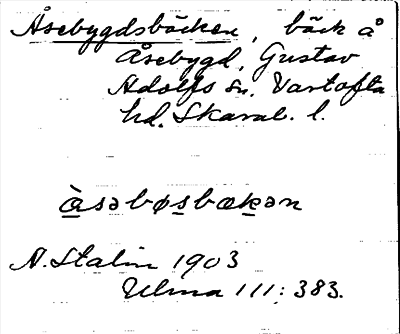 Åsebygdsbäcken, bäck å
Åsebygd, Gustav
Adolfs sn. Vartofta
hd. Skarab. l.
àsəbøsbækən
N. Stalin 1903
Ulma 111: 383.